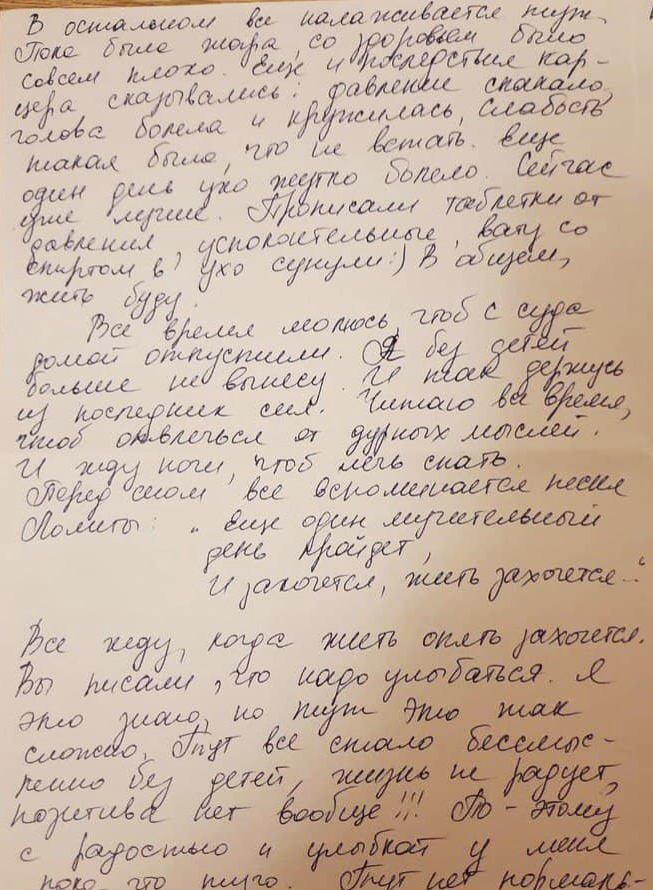 В остальном все налаживается тут.
Пока была жара, со здоровьем было
совсем плохо. Еще и последствия кар-
цера сказывались: давление скакало,
голова болела и кружилась, слабость
такая была, что не встать. Еще
один день ухо жутко болело. Сейчас
уже лучше. Прописали таблетки от
давления, успокоительные, вату со
спиртом в ухо сунули:) В общем,
жить буду.
Все время молюсь, чтоб с суда
домой отпустили. Я без детей
больше не вынесу. И так держусь
из последних сил. Читаю все время,
чтоб отвлечься от дурных мыслей.
И жду ночи, чтоб лечь спать.
Перед сном все вспоминается песня
Лолиты: „Еще один мучительный
день пройдет,
И захочется, жить захочется..."
Все жду, когда жить опять захочется.
Вы писали, что надо улыбаться. Я
это знаю, но тут это так
сложно. Тут все стало бессмыс-
ленно без детей, жизнь не радует,
позитива нет вообще!!! По-этому
с радостью и улыбкой у меня
пока что туго. Тут нет нормаль-